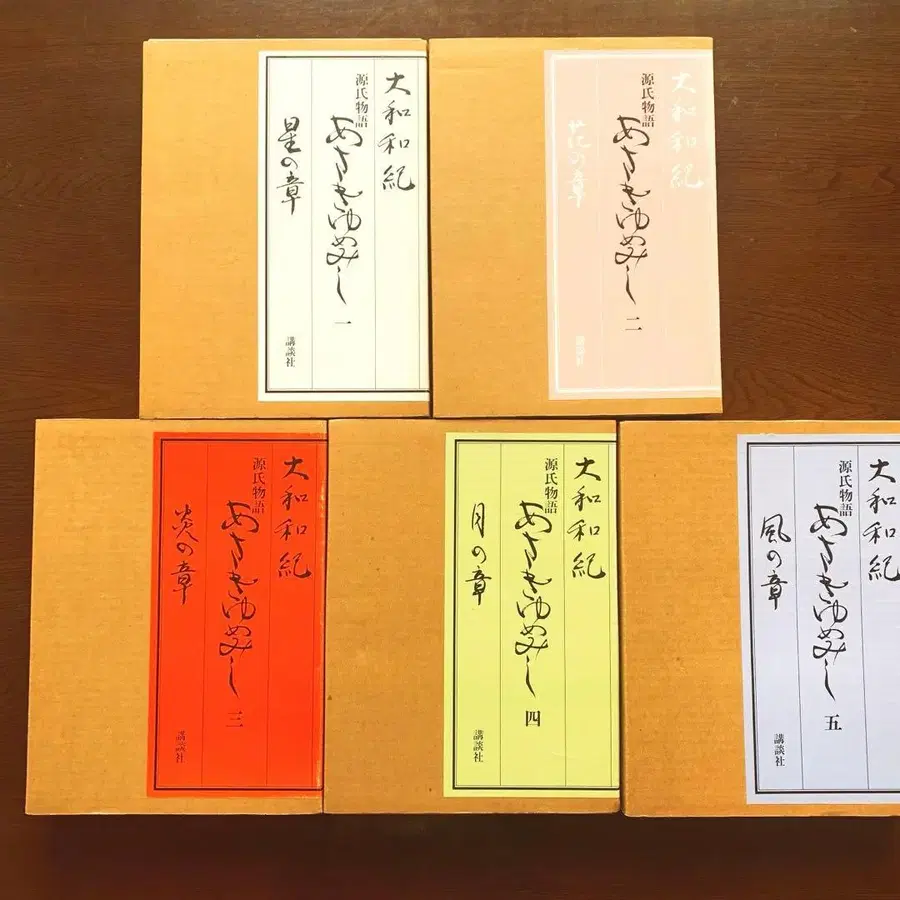 大和和紀
源氏物語
あさきゆめみし 一
星の章
講談社
大和和紀
源氏物語
あさきゆめみし 二
花の章
講談社
大和和紀
源氏物語
あさきゆめみし 三
炎の章
講談社
大和和紀
源氏物語
あさきゆめみし 四
月の章
講談社
大和和紀
源氏物語
あさきゆめみし 五
風の章
講談社